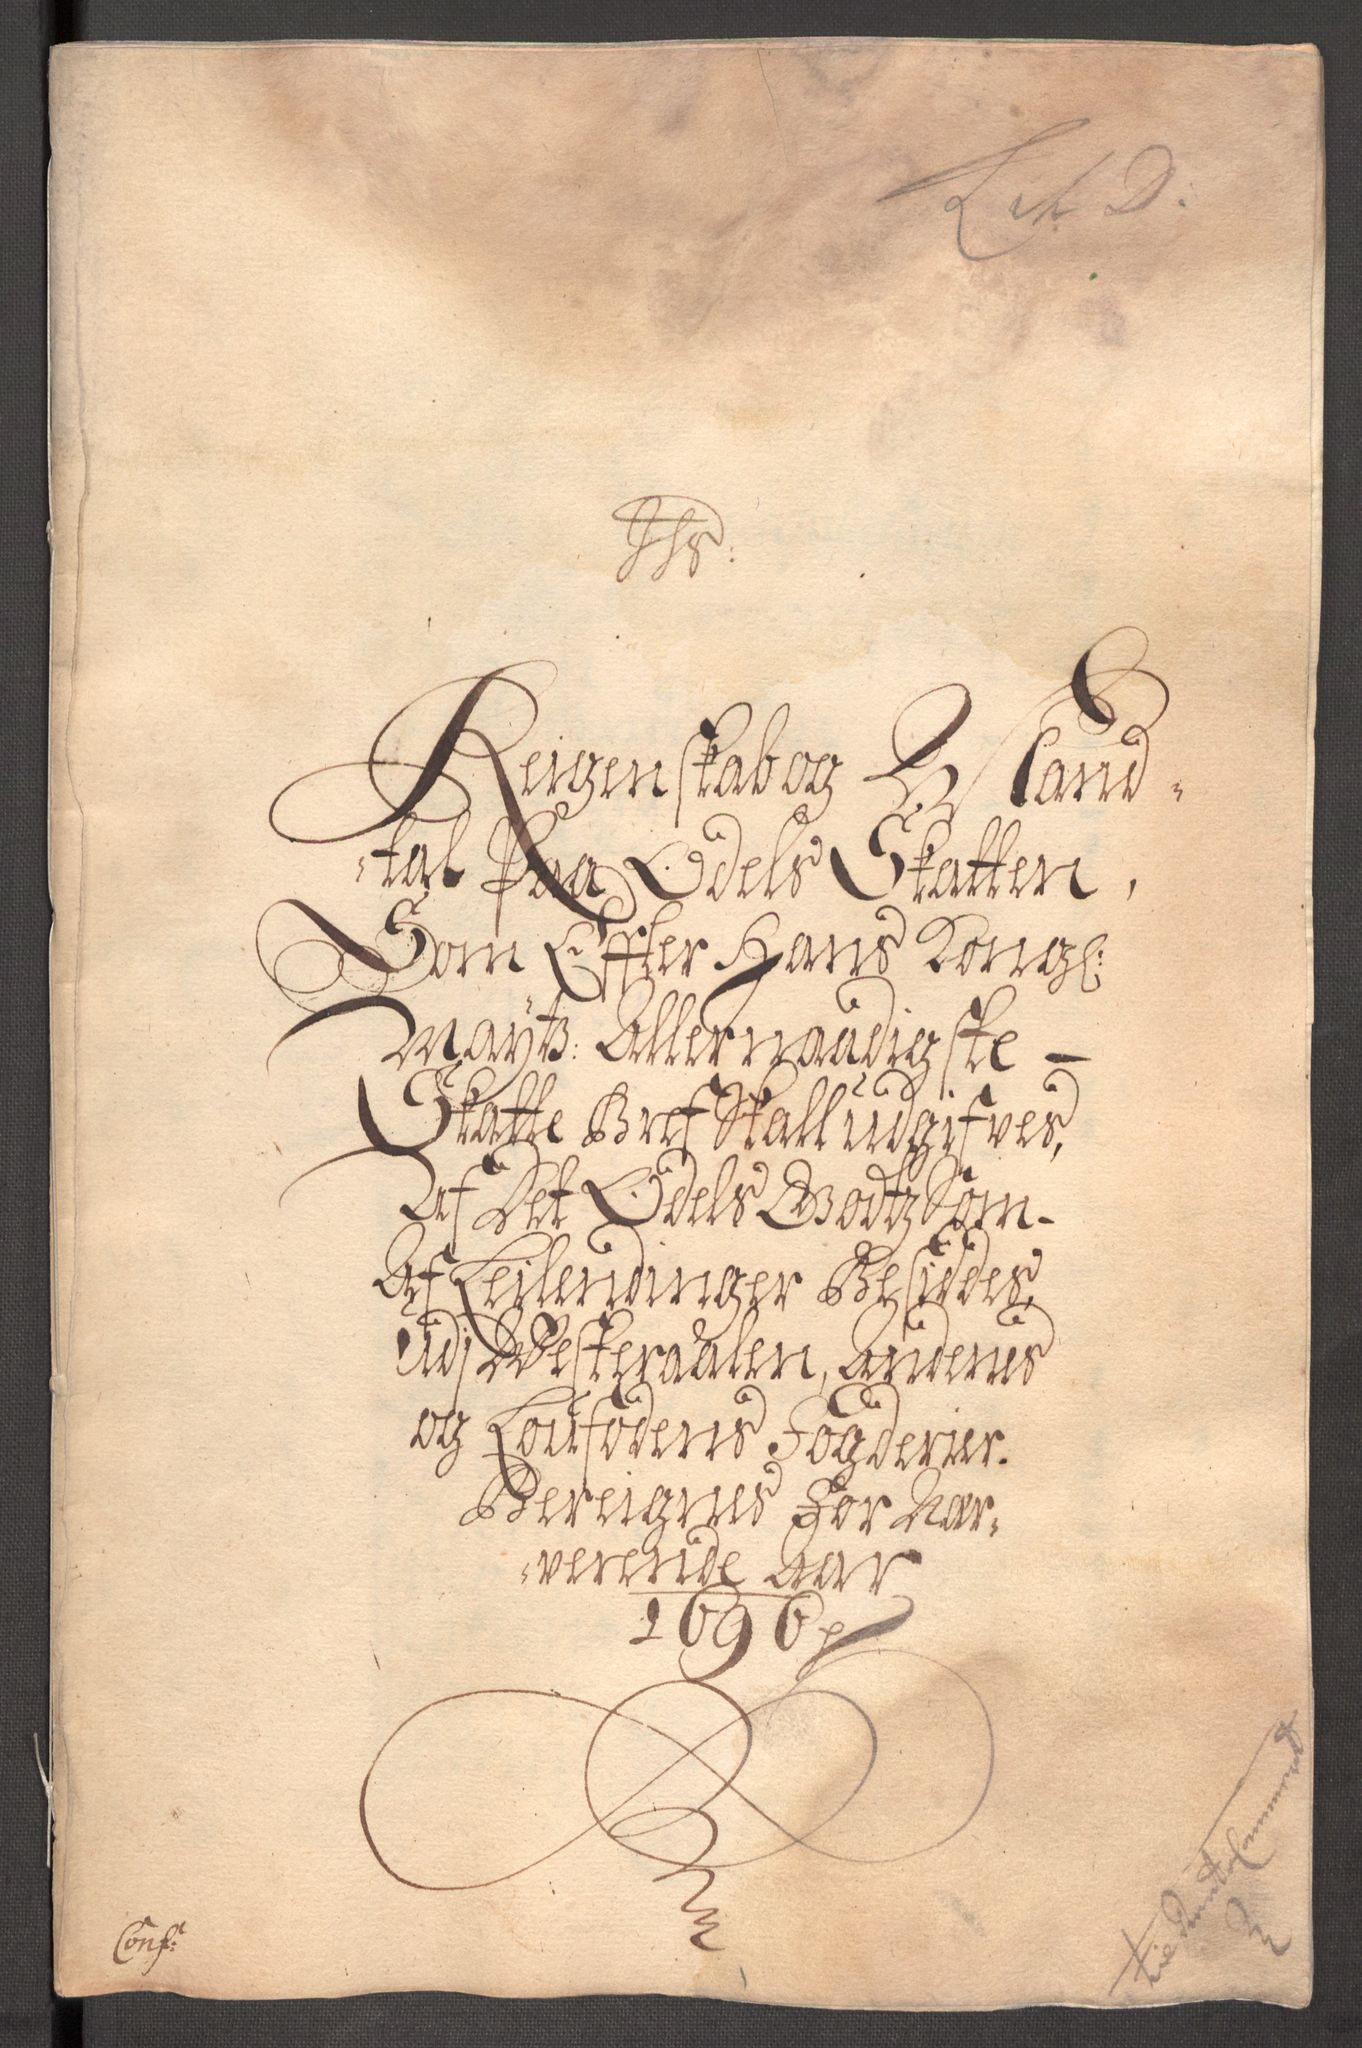 Lit D:
Jhs:
Reigenskab og Mand-
-tal Paa Odels Skatten,
Som Effter Hans Kongl:
Mayts: Allernaadigste
Skatte Bref Skall üdgifves,
Af Det Odels Godtz Som
Af Leilendinger Besiddes,
üdj Westeraalen, Andenes
og Loufodens Fogderier.
Bereignes For Nær-
-verende Aar
1696
Conf: